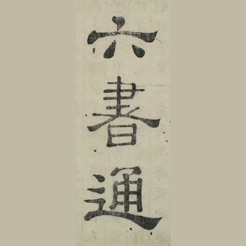 六書通